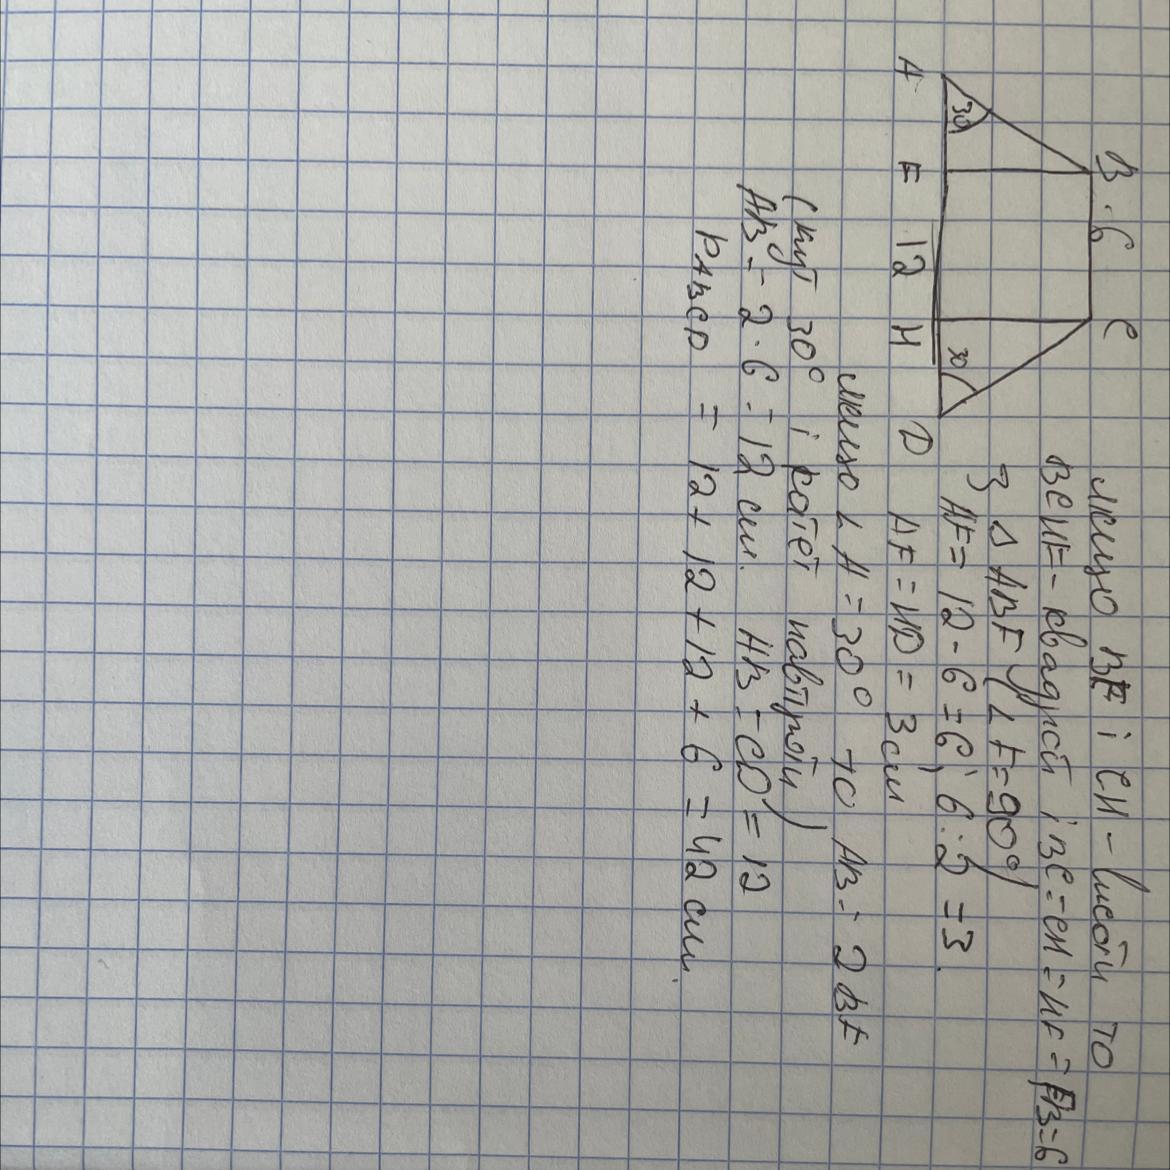 B 6 C
30 30
A F 12 H D
якщо BF і CH - висоти то
BCHF - квадрат і BC = CH = HF = FB = 6
З △ ABF (∠ F = 90°)
AF = 12 - 6 = 6; 6 : 2 = 3.
AF = HD = 3 см
якщо ∠ A = 30° то AB = 2 BF
(кут 30° і катет навпроти)
AB = 2 · 6 = 12 см. AB = CD = 12
PABCD = 12 + 12 + 12 + 6 = 42 см.